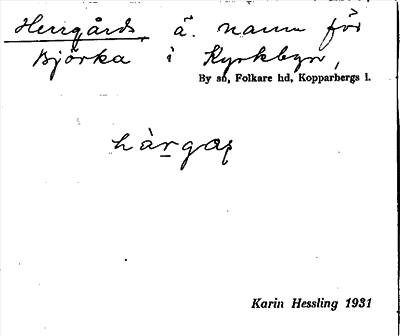 Herrgårds, ä. namn för
Björka i Kyrkbyn,
By sn, Folkare hd, Kopparbergs l.
Karin Hessling 1931